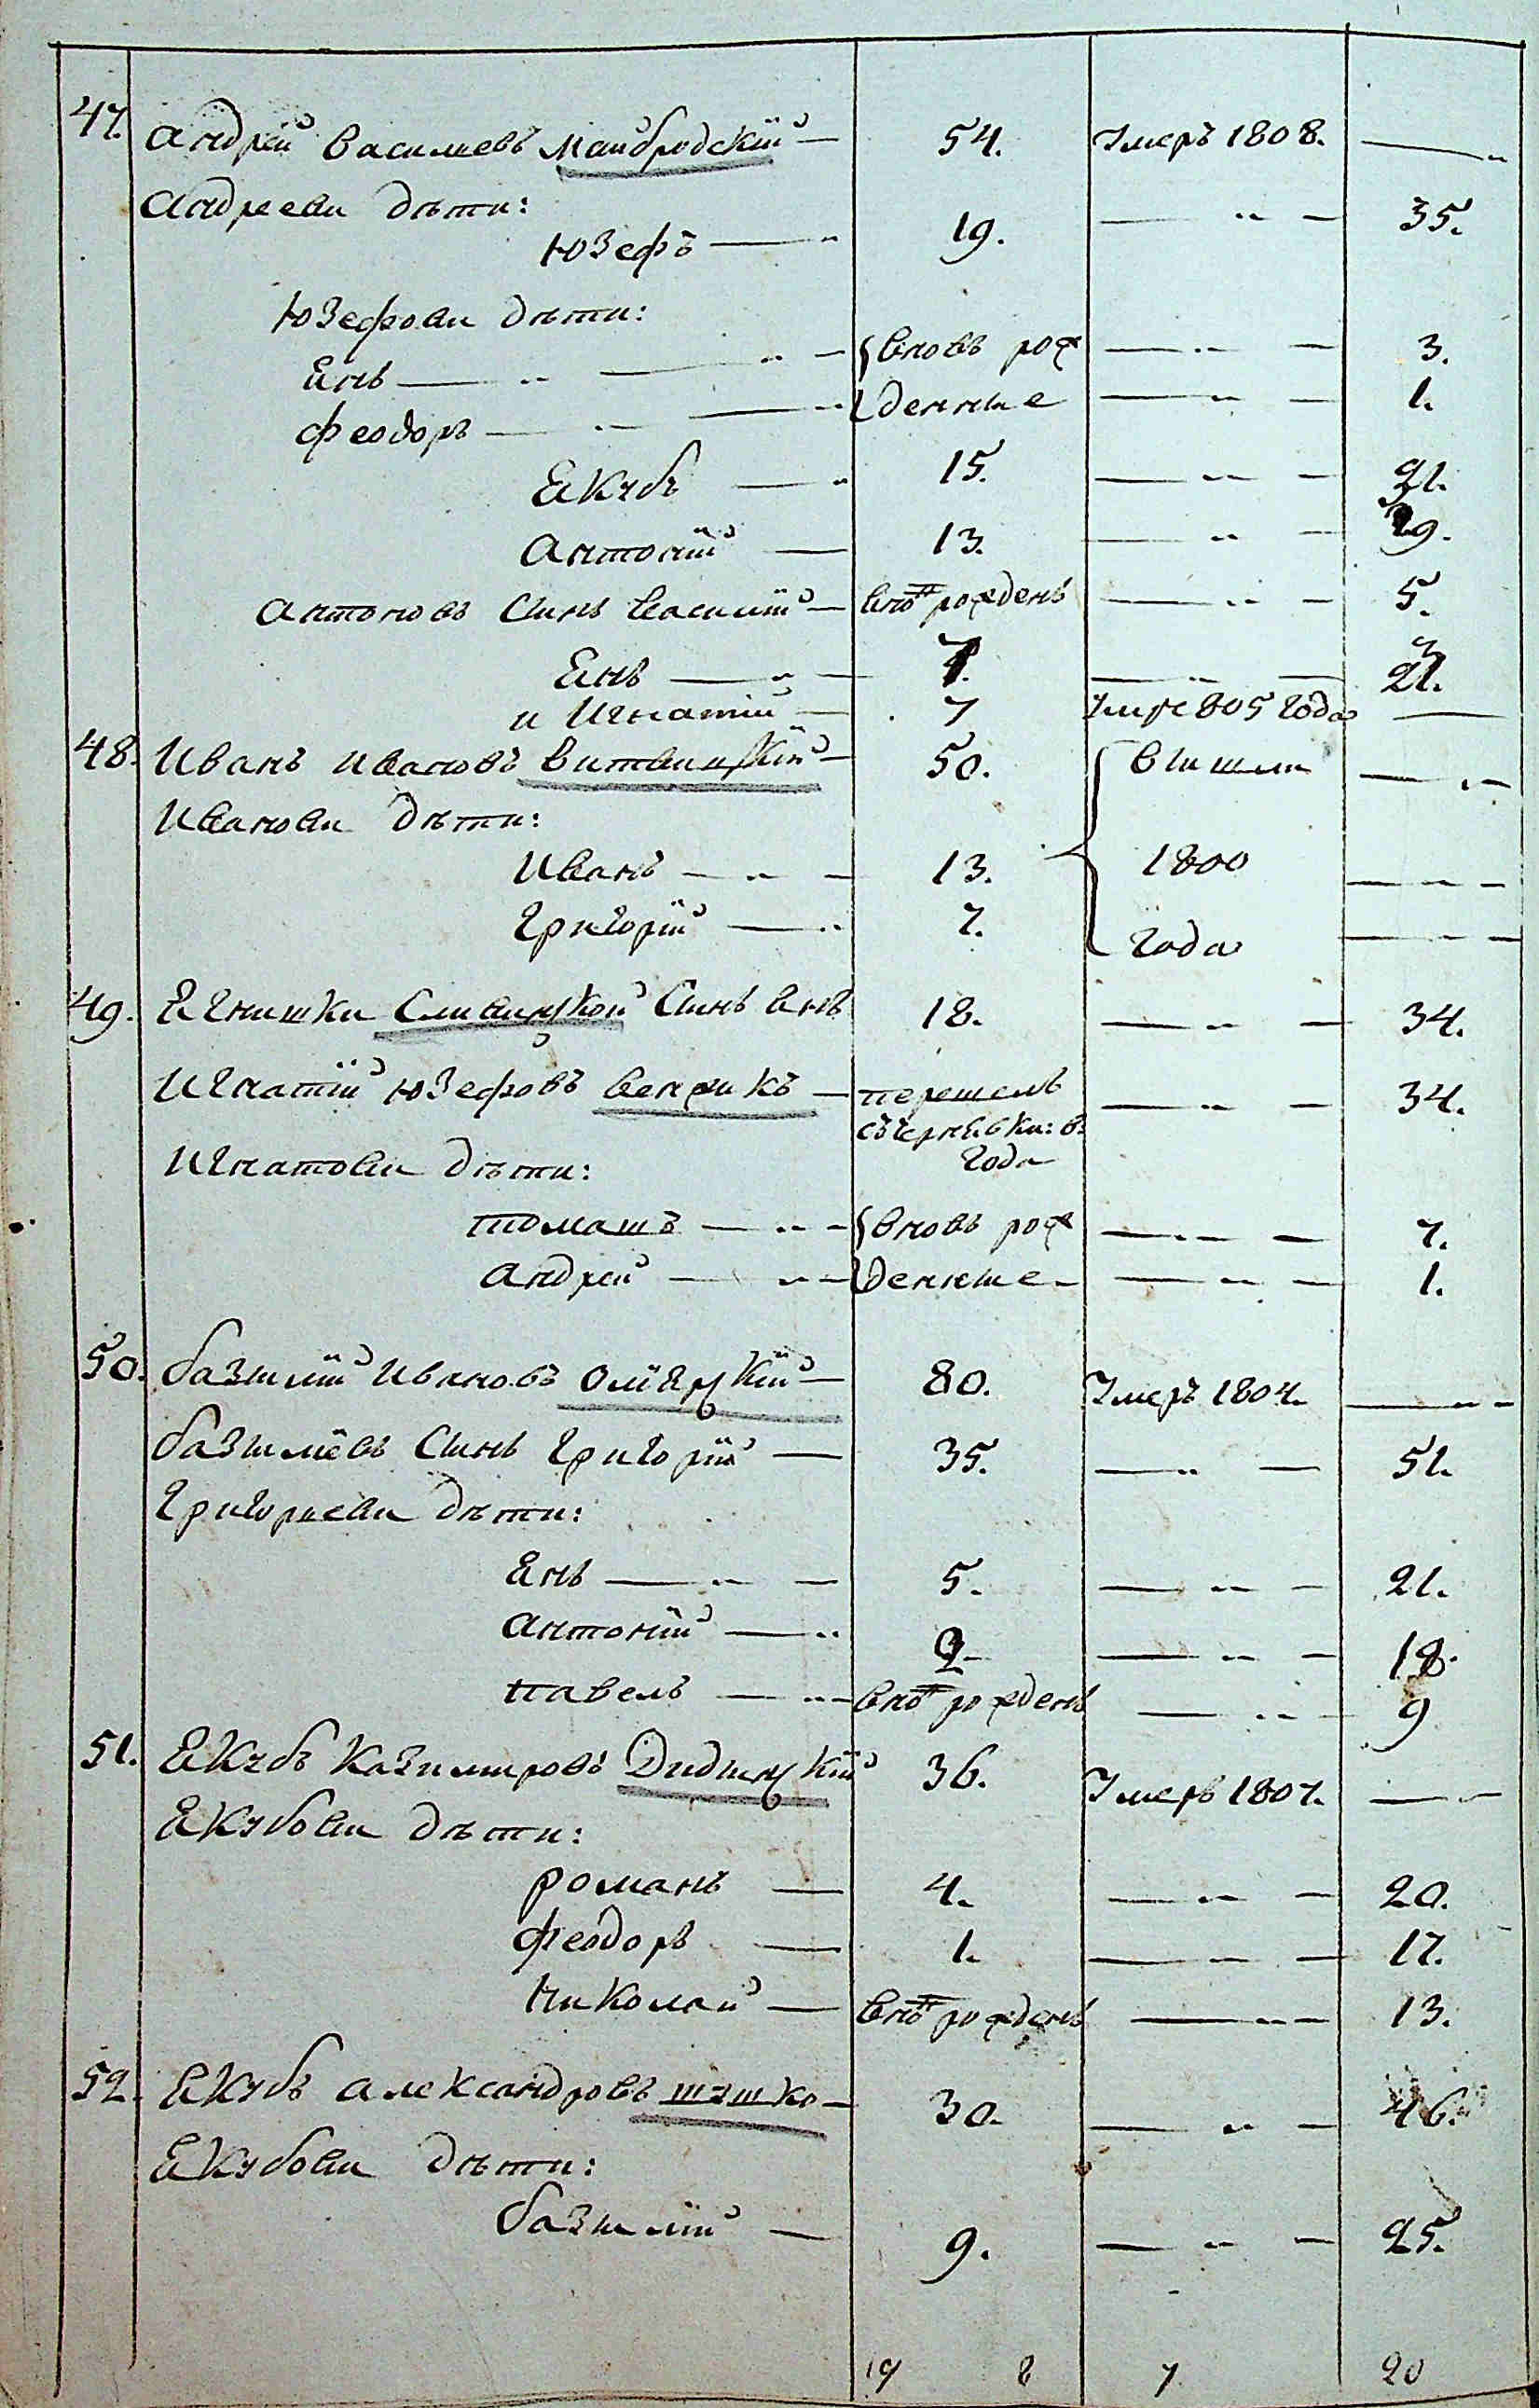 47. Андрей Василиевъ Майбродскій — 54. Умеръ 1808. —
Андрееви дѣти:
Юзефъ — 19. — 35.
Юзефови дѣти:
Янъ — вновь рож — 3.
Феодоръ — денные — 1.
Якубъ — 15. — 31.
Антоній — 13. — 29.
Антоновъ Сынъ Василій — вновъ рожденъ — 5.
Янъ — 7. — 23.
и Игнатій — 7 Умре 805 года —
48. Иванъ Ивановъ Витвицкій — 50. вышли —
Иванови дѣти:
Иванъ — 13. 1800 —
Григорій — 7. года —
49. Ягнишки Сливицкой Сынъ Янъ 18. — 34.
Игнатій Юзефовъ — перешелъ — 34.
года
Игнатови дѣти:
Томашъ — вновь рож — 7.
Андрей — денные — 1.
50. Базилій Ивановъ — 80. Умеръ 1804. —
Базиліевъ Сынъ Григорій — 35. — 51.
Григориеви дѣти:
Янъ — 5. — 21.
Антоній — 2 — 18.
Павелъ — вновъ рожденъ — 9
51. Якубъ Казимировъ Дидицкій 36. Умеръ 1807. —
Якубови дѣти:
Романъ — 4. — 20.
Феодоръ — 1. — 17.
Николай — вновъ рожденъ — 13.
52. Якубъ Александровъ Шушко — 30. — 46.
Якубови дѣти:
Базилій — 9. — 25.
19 8 7 20